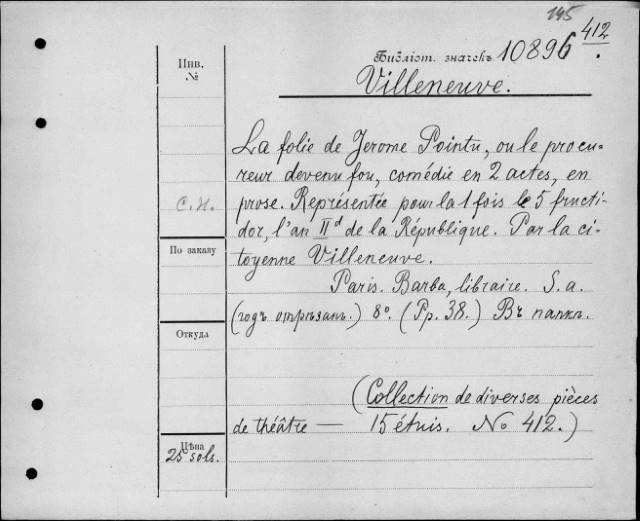 145
412
Инв.
№
Библіот. значекъ 10896
Villeneuve.
La folie de Jerome Pointu, ou le procu=
reur devenu fou, comédie en 2 actes, en
prose. Représentée pour la 1 fois le 5 fructi-
dor, l'an II d de la République. Par la ci-
toyenne Villeneuve.
Paris. Barba, libraire. S. a.
(годъ отрѣзанъ.) 8º. (Pp. 38.) Въ папкѣ.
С.Н.
По заказу
Откуда
(Collection de diverses pièces
de théâtre — 15 étuis. No 412.)
Цѣна
25 sols.